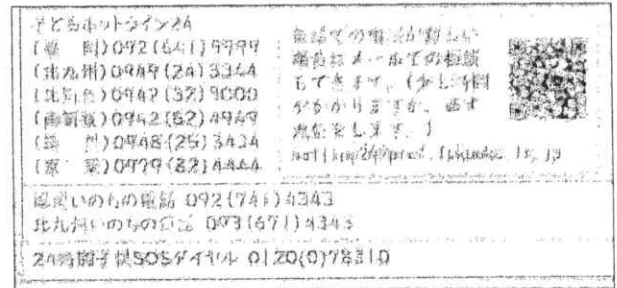 子どもホットライン24
(福 岡)092(641)9999
(北九州)0949(24)3344
(北筑後)0942(32)3000
(南筑後)0942(52)4949
(筑 豊)0948(25)3434
(京 築)0979(82)4444
電話での相談が難しい
場合はメールでの相談
もできます。(少し時間
がかかりますが、必ず
返信をします。)
福岡いのちの電話 092(741)4343
北九州いのちの電話 093(671)4343
24時間子供SOSダイヤル 0120(0)78310